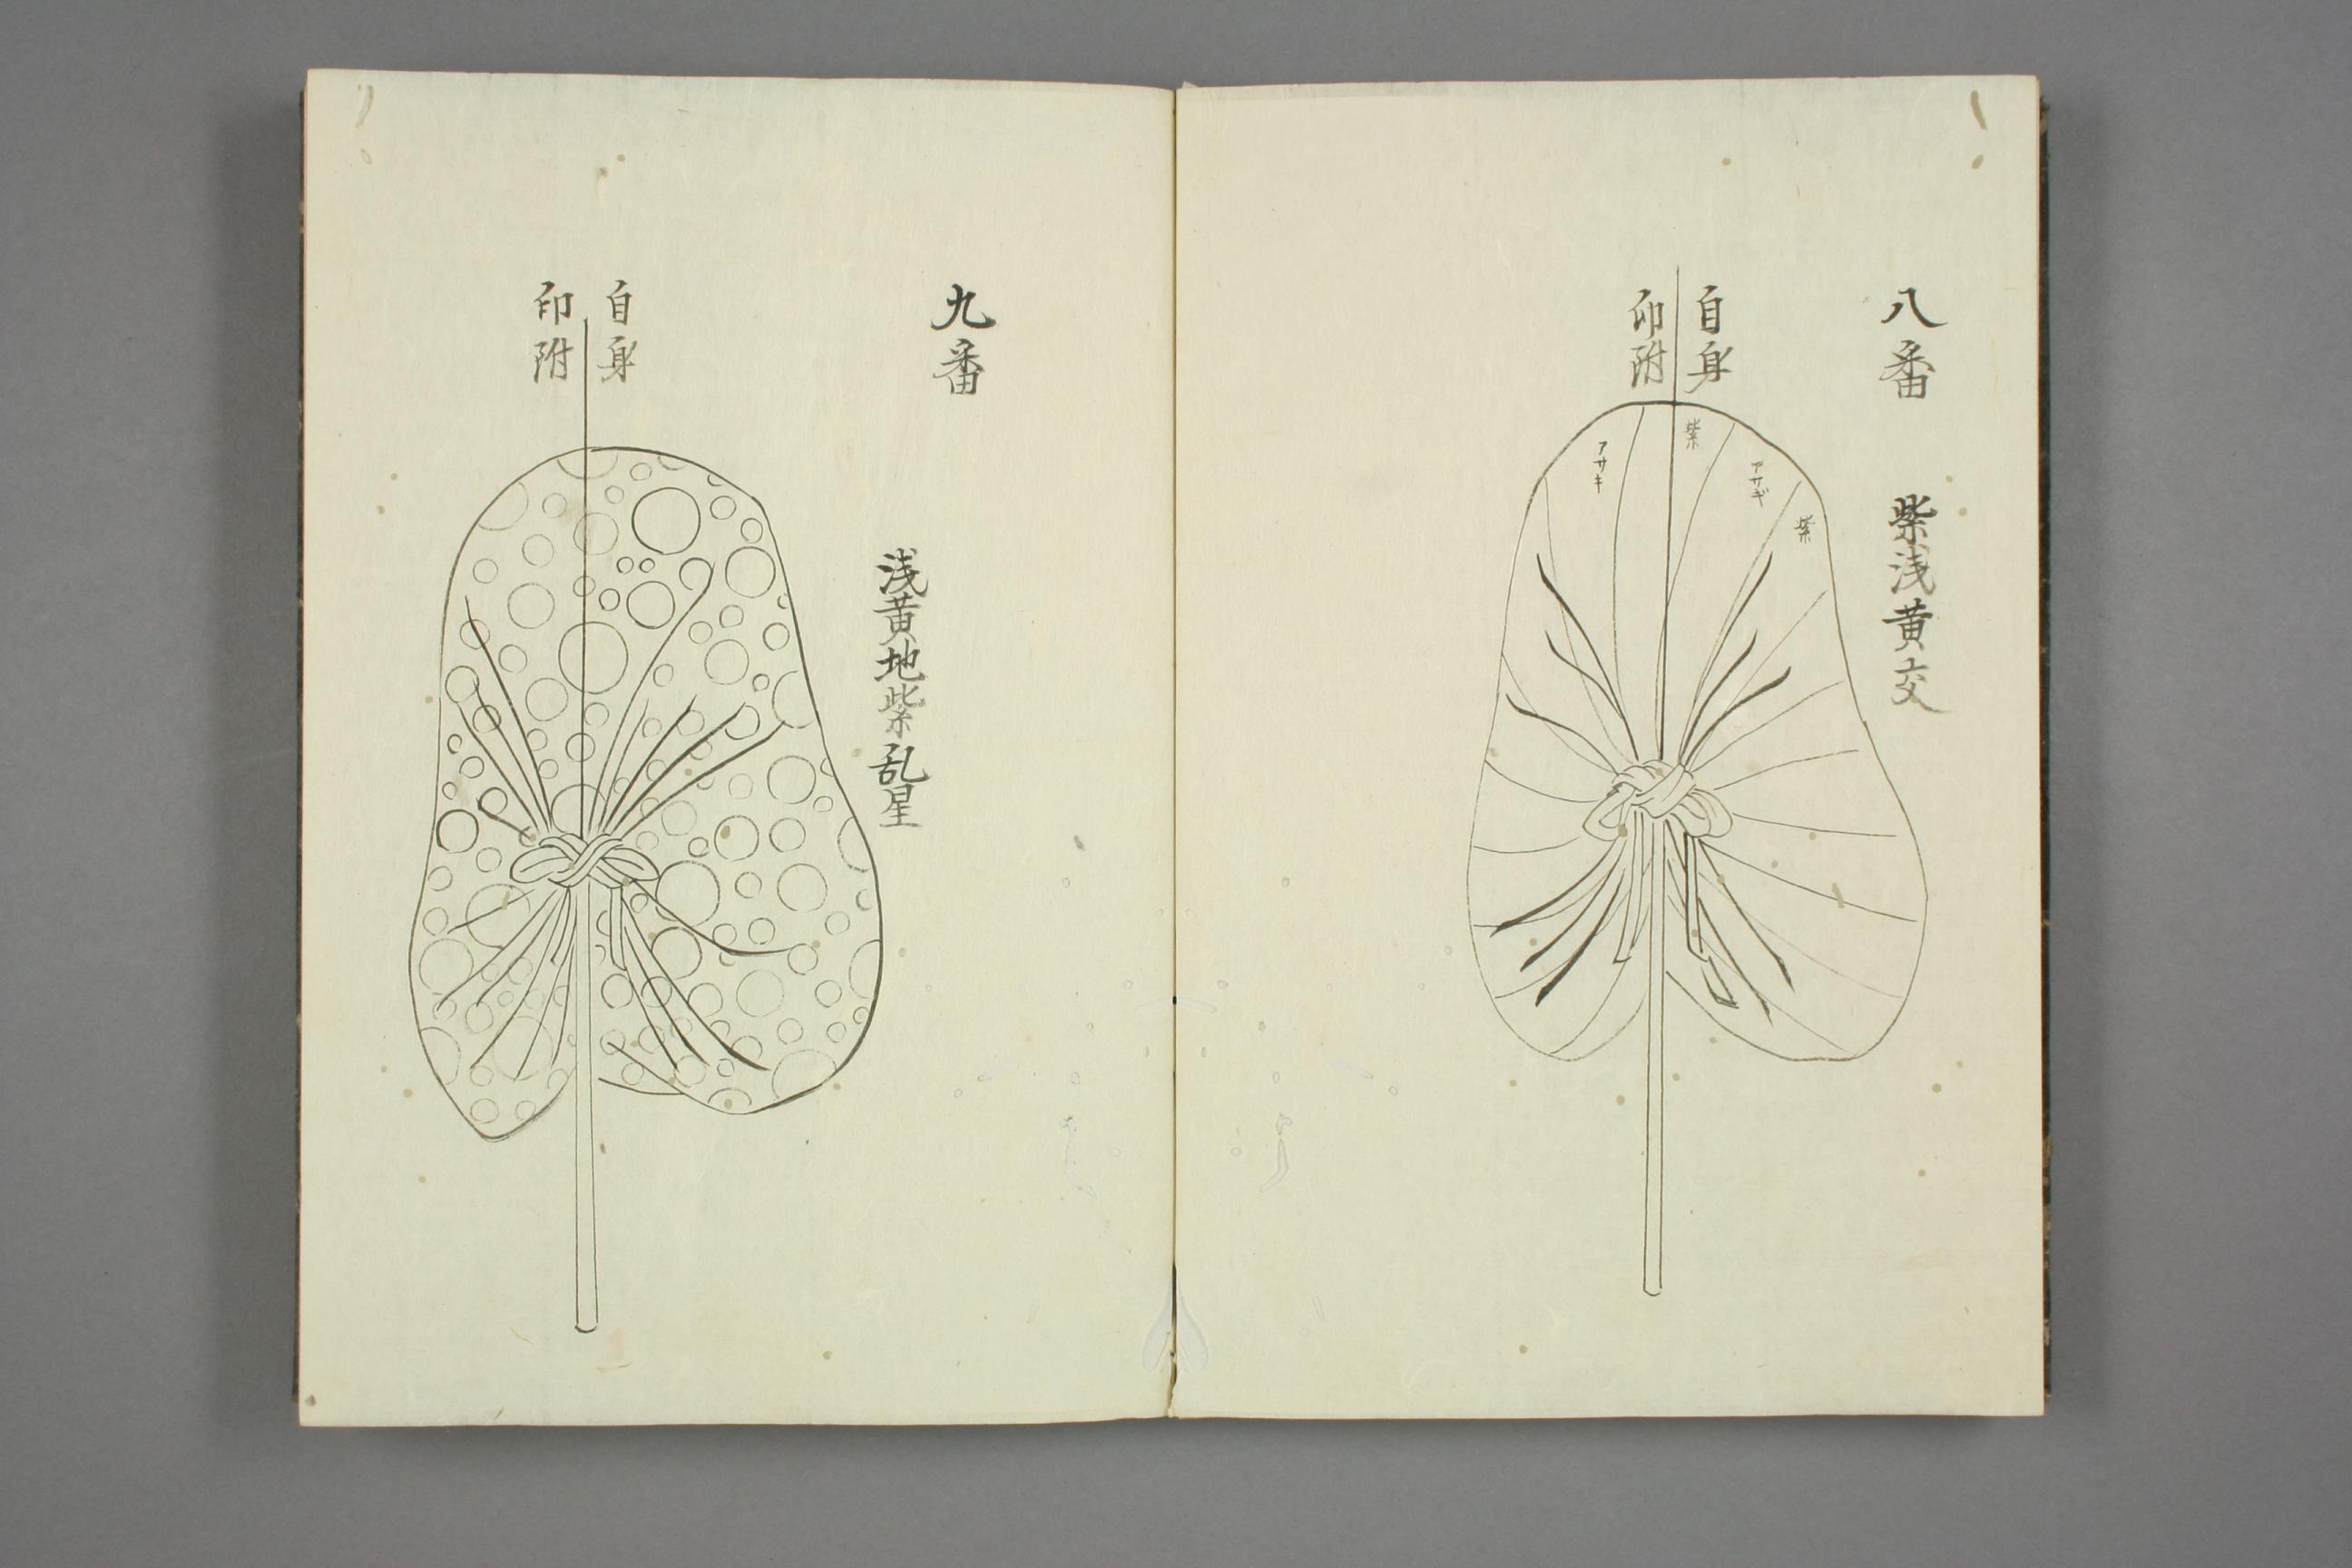 八番
紫浅黄交
自身
印附
紫
アサギ
紫
アサキ
九番
浅黄地紫乱星
自身
印附